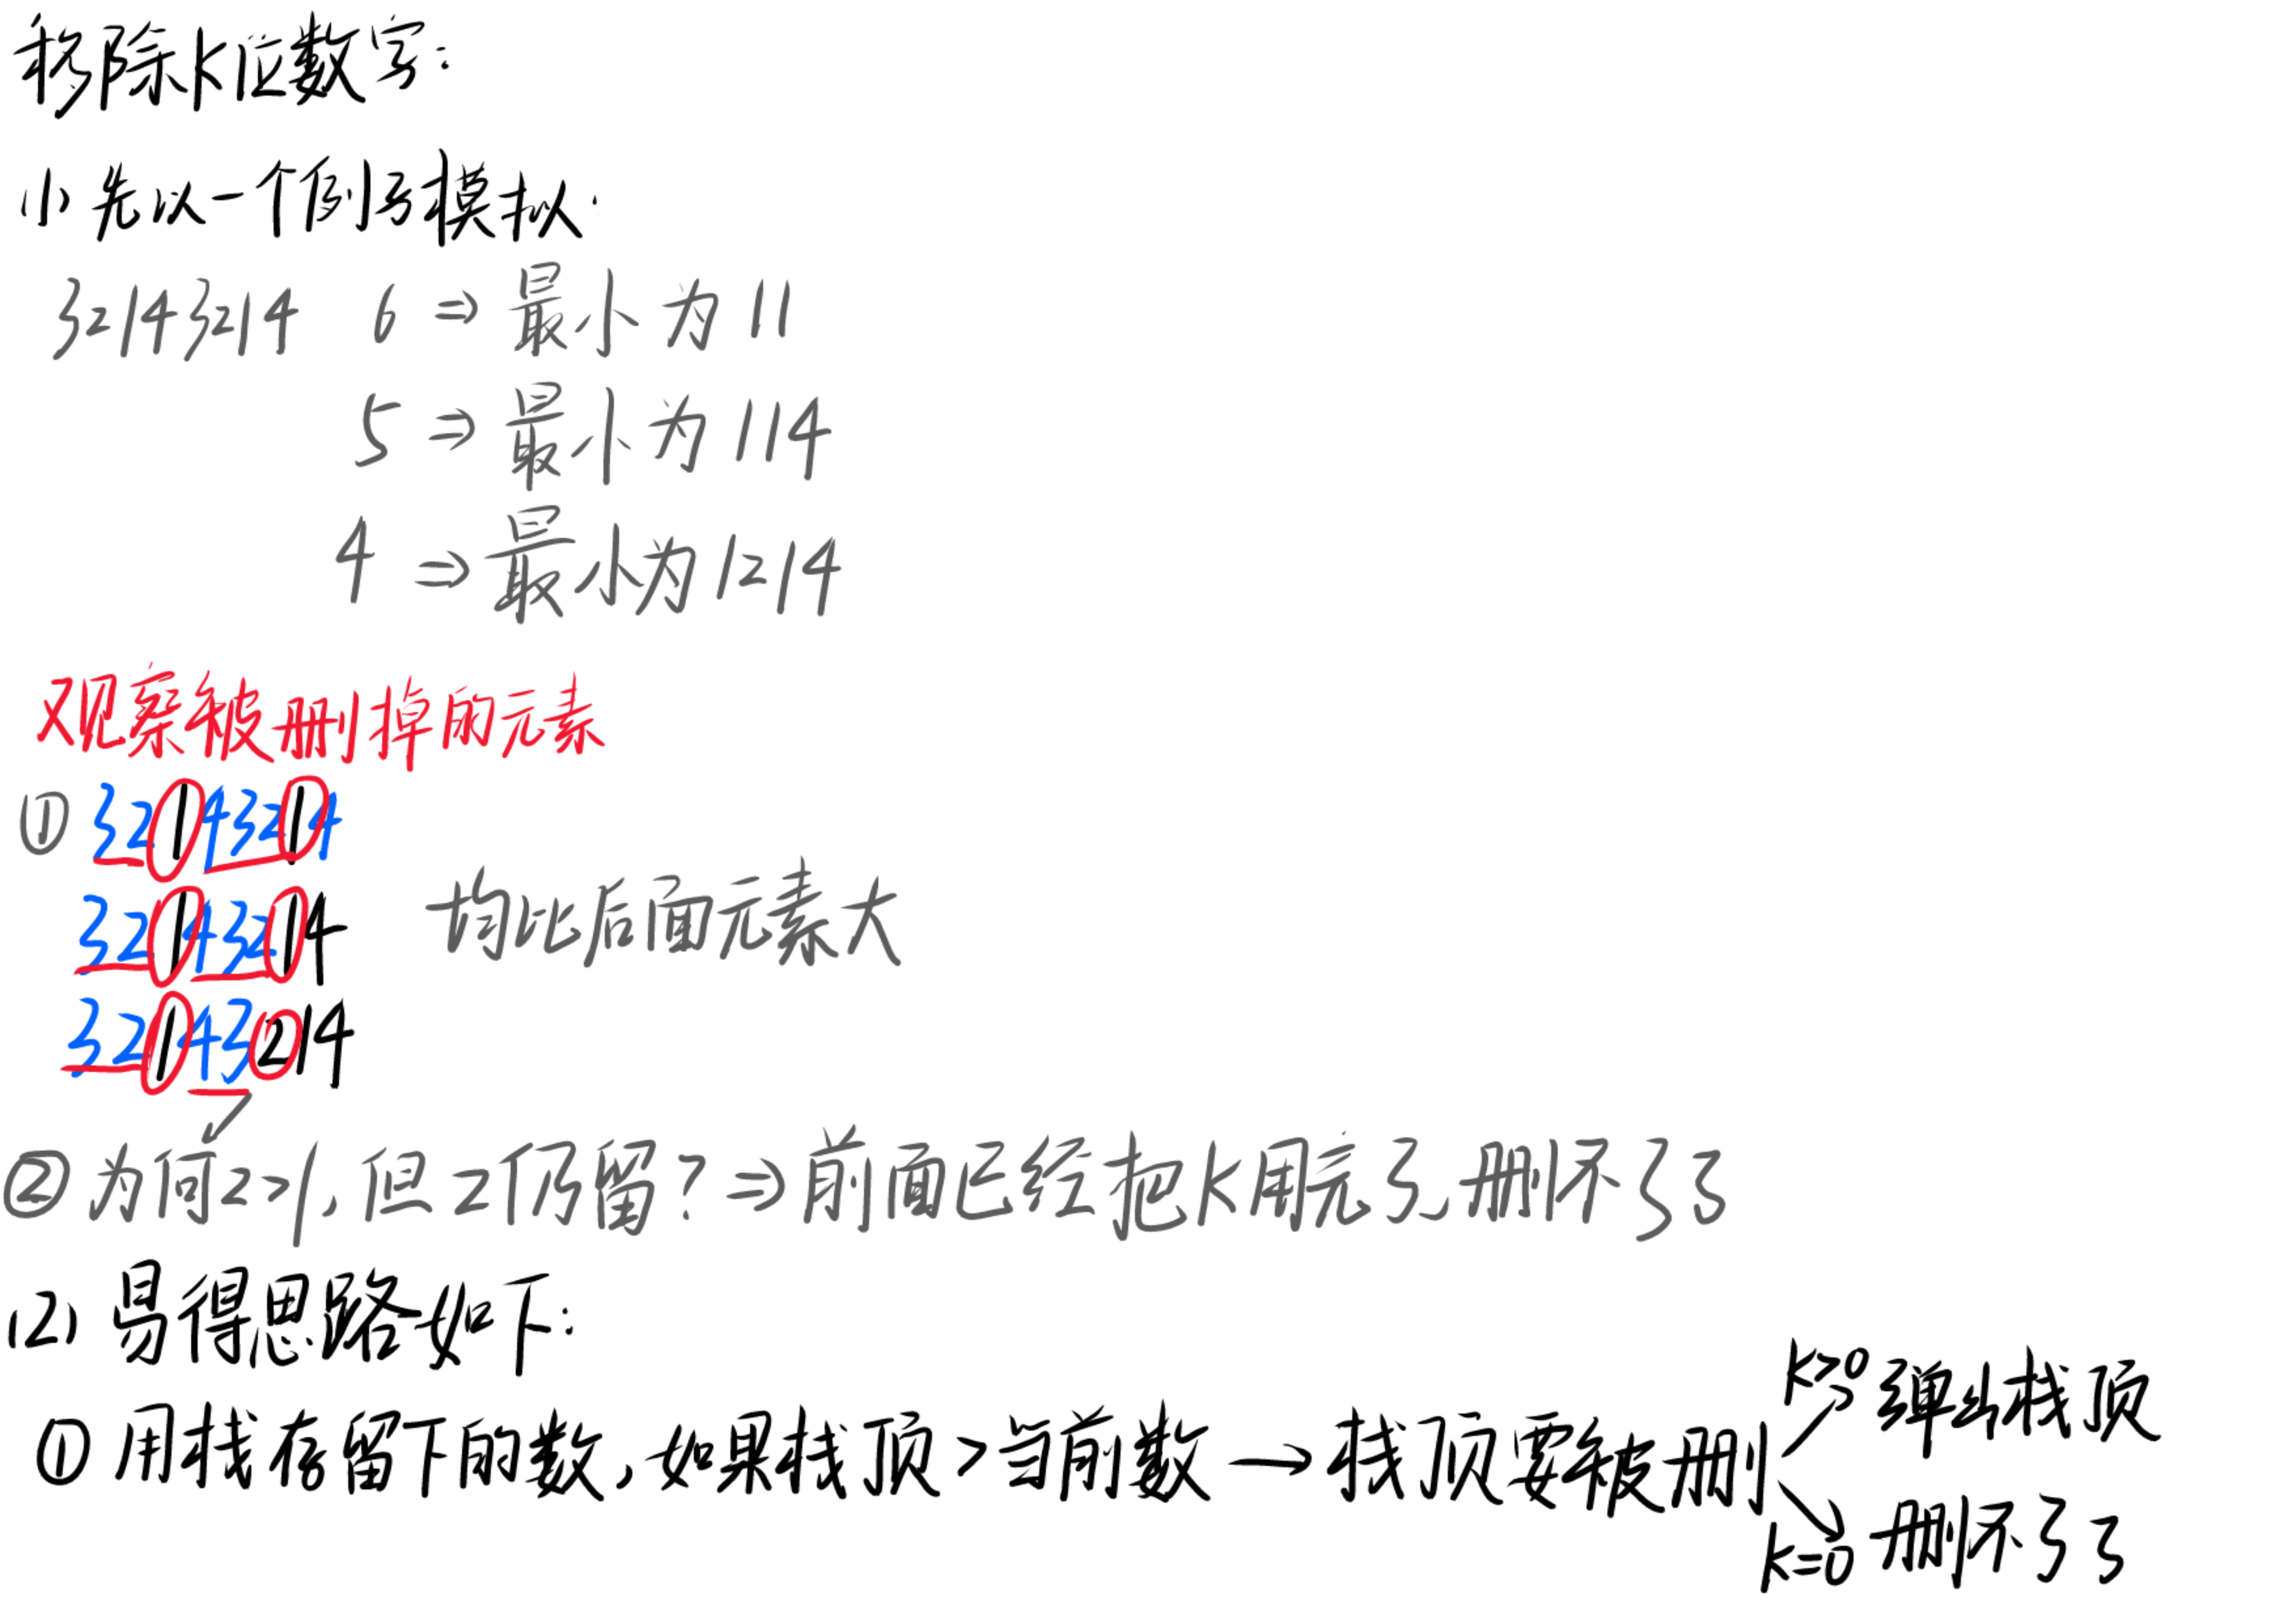 移除K位数字:
(1) 先以一个例子模拟:
32143214 6 ⇒ 最小为 11
5 ⇒ 最小为 114
4 ⇒ 最小为 1214
观察被删掉的元素
① 32143214
32143214 均比后面元素大
32143214
② 为何2>1, 但2仍留? ⇒ 前面已经把K用完了, 删不了了
(2) 易得思路如下:
① 用栈存留下的数, 如果栈顶>当前数 → 栈顶要被删
k>0 弹出栈顶
k=0 删不了了